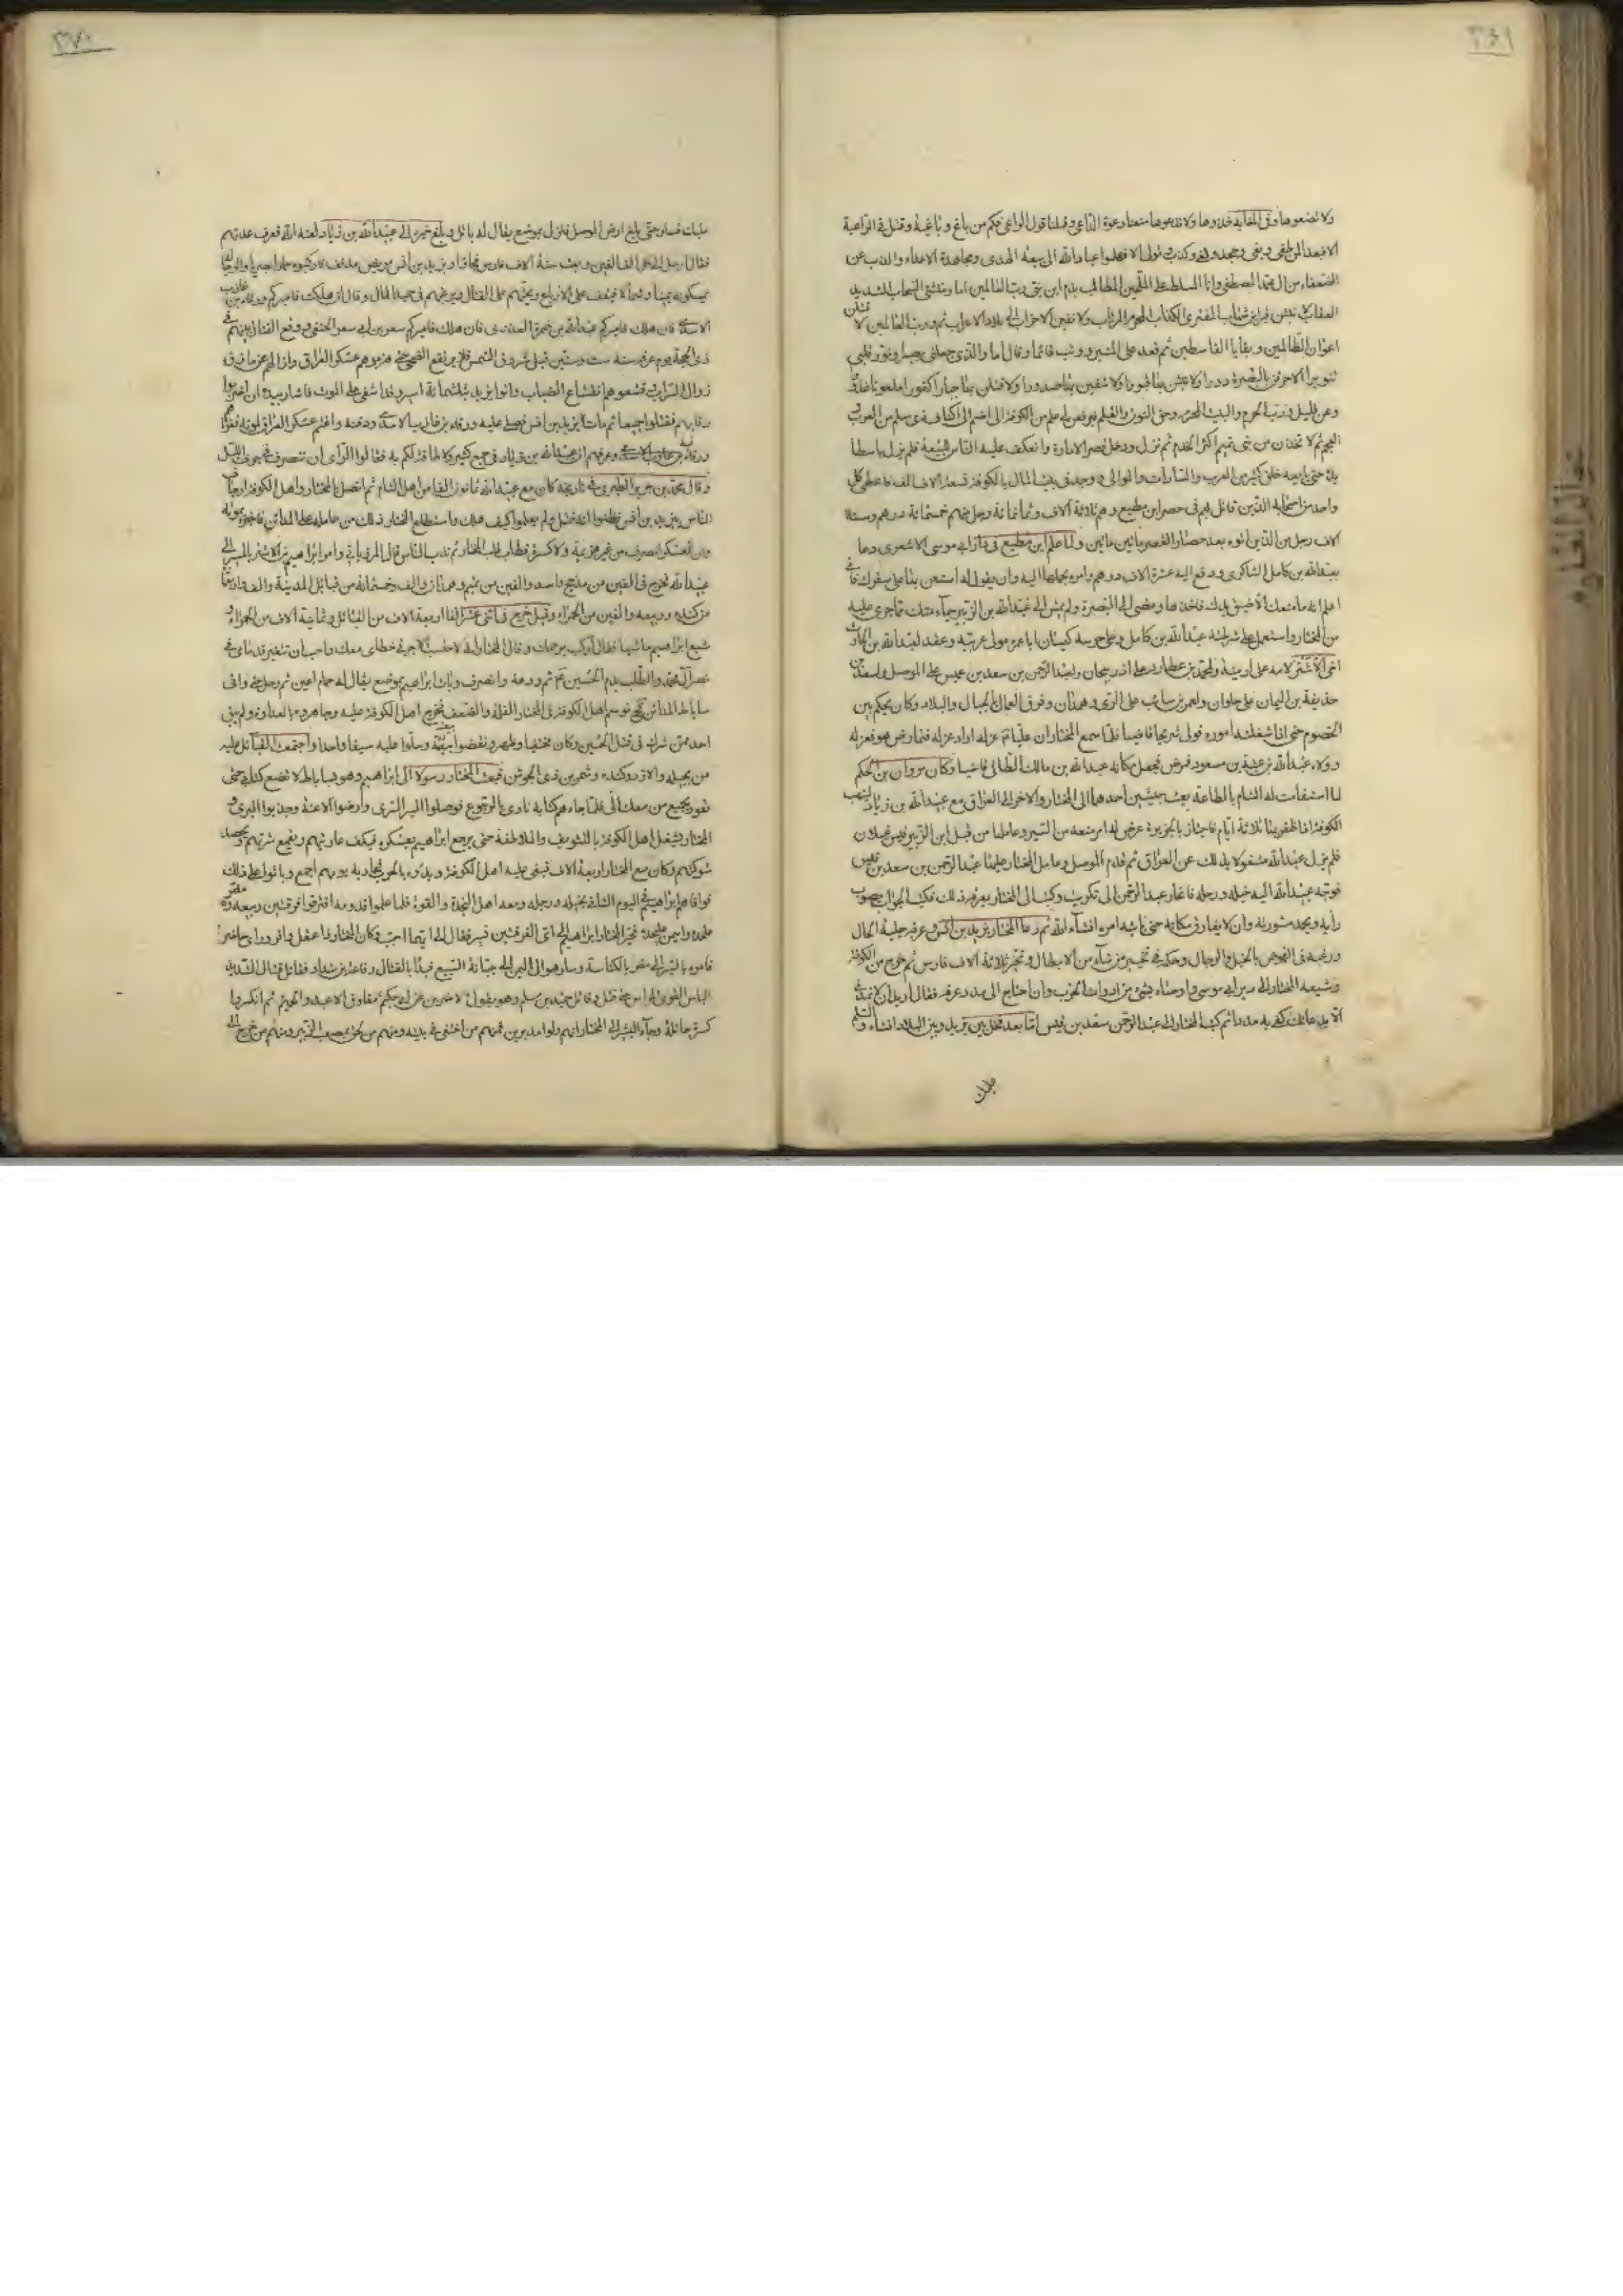 ٣٦٩
ولا تضعوها وفى المغابة خذوها ولا تدعوها سمعنا دعوة الداعى وقبلنا قول الراعى فكم من باغ و باغية وقتلى فى الواعية
الا فبعدا لمن طغى وبغى وجحد ولغى وكذب وتولى الا فهلموا عباد الله الى بيعة الهدى ومجاهدة الاعداء والذب عن
الضعفاء من آل محمد المصطفى وانا المسلط على المحلين المطالب بدم ابن بنت نبى رب العالمين اما ومنشئ السحاب الشديد
العقاب لا نبشن قبر ابن شهاب المفترى الكذاب المجرم المرتاب ولا نفين الاحزاب الى بلاد الاعراب ثم ورب العالمين لا قتلن
اعوان الظالمين وبقايا القاسطين ثم قعد على المنبر ووثب قائما وقال اما والذى جعلنى بصيرا ونور قلبى
تنويرا لاحرقن بالمصر دورا ولا نبشن بها قبورا ولا شفين بها صدورا ولا قتلن بها جبارا كفورا ملعونا غدورا
وعن قليل ورب الحرم والبيت المحرم وحق النون والقلم ليرفعن لى علم من الكوفة الى اضم الى اكناف ذى سلم من العرب و
العجم ثم لا تخذن من بنى تميم اكثر الخدم ثم نزل ودخل قصر الامارة وانعكف عليه الناس للبيعة فلم يزل باسطا
يده حتى بايعه خلق كثير من العرب والسادات والموالى ووجد فى بيت المال بالكوفة تسعة الاف الف فاعطى كل
واحد من اصحابه الذين قاتل بهم فى حصر ابن مطيع وهم ثلاثة آلاف وثمانمائة رجل منهم خمسمائة درهم وستة
الاف رجل من الذين اتوه بعد حصار القصر مائتين مائتين ولما علم ابن مطيع فى دار ابى موسى الاشعرى دعا
بعبد الله بن كامل الشاكرى ودفع اليه عشرة الاف درهم وامره بحملها اليه وان يقول له استعن بها على سفرك فانى
اعلم انه ما منعك الا ضيق يدك فاخذها ومضى الى البصرة ولم يمض الى عبد الله بن الزبير حياء منك مما جرى عليه
من المختار واستعمل على شرطته عبد الله بن كامل وعلى حرسه كيسان ابا عمرة مولى عرينة وعقد لعبد الله بن الحارث
اخى الاشتر لامه على ارمينية ولمحمد بن عطارد على اذربيجان ولعبد الرحمن بن سعد بن عيس على الموصل ولسعد بن
حذيفة بن اليمان على حلوان ولعمر بن سائب على الرى وهمدان وفرق العمال بالجبال والبلاد وكان يحكم بين
الخصوم حتى اذا شغلته اموره فولى شريحا قاضيا فلما سمع المختار ان عليا ع عزله اراد عزله فتمارض هو فعزله
وولاه عبد الله بن عتبة بن مسعود فمرض فجعل مكانه عبد الله بن مالك الطائى قاضيا وكان مروان بن الحكم
لما استقامت له الشام بالطاعة بعث جيشين احدهما الى المختار والاخر الى العراق مع عبيد الله بن زياد لينهب
الكوفة اذا ظفر بها ثلاثة ايام فاجتاز بالجزيرة عرض له امر منعه من السير وعاملها من قبل ابن الزبير قيس غيلان
فلم يزل عبيد الله مشغولا بذلك عن العراق ثم قدم الموصل وعامل المختار عليها عبد الرحمن بن سعد بن قيس
فوجه عبيد الله اليه خيله ورجله فانحاز عبد الرحمن الى تكريت وكتب الى المختار يعرفه ذلك فكتب الجواب يصوب
رأيه ويحمد مشورته وان لا يفارق مكانه حتى ياتيه امره انشاء الله ثم دعا المختار يزيد بن انس وعرفه جلية الحال
ورغبه فى النهوض بالخيل والرجال وحكمه فى تخيير من شاء من الابطال فتخير ثلاثة الاف فارس ثم خرج من الكوفة
وشيعه المختار الى دير ابى موسى واوصاه بشئ من ادوات الحرب وان احتاج الى مدد عرفه فقال اريد لا تمدنى
الا بدعائك كفى به مددا ثم كتب المختار الى عبد الرحمن سعد بن قيس اما بعد فخل بين يزيد وبين البلاد انشاء الله والسلم
عليك
٣٧٠
عليك فسار حتى بلغ ارض الموصل فنزل بموضع يقال له باتلى وبلغ خبره الى عبيد الله بن زياد لعنه الله فعرف عدتهم
فقال ارسل الى كل الف الفين وبعث ستة الاف فارس فجاؤا ويزيد بن انس مريض مدنف فاركبوه حمارا مصريا والرجال
يمسكونه يمينا وشمالا فيقف على الارباع ويحثهم على القتال ويرغبهم فى حميد المآل وقال ان هلكت فاميركم ورقاء بن عازب
الاسدى فان هلك فاميركم عبد الله بن ضمرة العذرى فان هلك فاميركم سعر بن ابى سعر الحنفى ووقع القتال بينهم فى
ذى الحجة يوم عرفة سنة ست وستين قبل شروق الشمس فلم يرتفع الضحى حتى هزموهم عسكر العراق وازالوهم عن مازق
زوال السراب وقشعوهم انقشاع الضباب واتوا يزيد بثلثمائة اسير وقد اشفى على الموت فاشار بيده ان اضربوا
رقابهم فقتلوا جميعا ثم مات يزيد بن انس فصلى عليه ورقاء بن عازب الاسدى ودفنه واغتم عسكر العراق لموته فعزاهم
ورقاء بن عازب وعرفهم ان عبيد الله بن زياد فى جمع كثير ولا طاقة لكم به فقالوا الراى ان ننصرف فى جوف الليل
وقال محمد بن جرير الطبرى فى تاريخه كان مع عبيد الله ثمانون الفا من اهل الشام ثم اتصل بالمختار واهل الكوفة ارجاف
الناس بيزيد بن انس فظنوا انه قتل ولم يعلموا كيف هلك واستطلع المختار ذلك من عامله على المدائن فاخبره بموته
وان العسكر انصرف من غير هزيمة ولا كسرة فطاب قلب المختار ثم ندب الناس قال المرزبانى وامر ابراهيم بن الاشتر بالمسير الى
عبيد الله فخرج فى الفين من مذحج واسد والفين من تميم وهمدان والف وخمسمائة من قبائل المدينة والف واربعمائة
من كندة وربيعة والفين من الحمراء وقيل خرج فى اثنى عشر الفا اربعة الاف من القبائل وثمانية الاف من الحمراء و
شيع ابراهيم ماشيا فقال اركب يرحمك الله فقال المختار انى لاحتسب الاجر فى خطاى معك واحب ان تتغبر قدماى فى
نصر آل محمد والطلب بدم الحسين ع ثم ودعه وانصرف وبات ابراهيم بموضع يقال له حمام اعين ثم رحل حتى وافى
ساباط المدائن فحينئذ توسم اهل الكوفة فى المختار القلة والضعف فخرج اهل الكوفة عليه وجاهروه بالعداوة ولم يبق
احد ممن شرك فى قتل الحسين وكان مختفيا الا وظهر ونقضوا بيعته وسلوا عليه سيفا واحدا واجتمعت القبائل عليه
من بجيلة والازد وكندة وشمر بن ذى الجوشن فبعث المختار رسولا الى ابراهيم وهو بساباط لا تضع كتابى حتى
تعود بجميع من معك الى فلما جاءهم كتابه نادى بالرجوع فوصلوا السير بالسرى وارخوا الاعنة وجذبوا البرى و
المختار يشغل اهل الكوفة بالتسويف والملاطفة حتى يرجع ابراهيم بعسكره فيكف عاديتهم ويقمع شرتهم ويحصد
شوكتهم وكان مع المختار اربعة الاف فبغى عليه اهل الكوفة وبدؤه بالحرب فحاربهم يومهم اجمع وباتوا على ذلك
فوافاهم ابراهيم فى اليوم الثانى بخيله ورجله ومعه اهل النجدة والقوة فلما علموا قدومه افترقوا فرقتين ربيعة ومضر
على حدة واليمن على حدة فخير المختار ابراهيم الى اى الفرقتين تسير فقال الى ايهما احببت وكان المختار ذا عقل وافر وراى حاضر
فامره بالسير الى مضر بالكناسة وسار هو الى اليمن الى جبانة السبيع فبدأ بالقتال رفاعة بن شداد فقاتل قتال الشديد
الباس القوى المراس حتى قتل وقاتل حميد بن مسلم وهو يقول لاضربن عن ابى حكيم مفارق الاعبد والحميم ثم انكسروا
كسرة هائلة وجاء البشير الى المختار انهم ولوا مدبرين فمنهم من اختفى فى بيته ومنهم من لحق بمصعب بن الزبير ومنهم من خرج الى